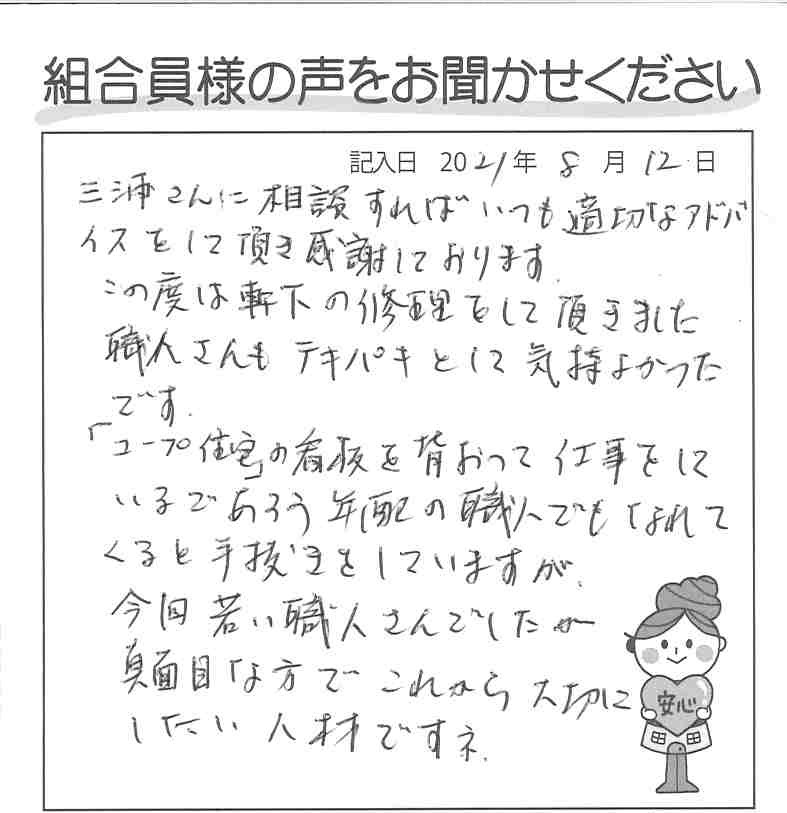 組合員様の声をお聞かせください
記入日 2021年 8月 12日
三浦さんに相談すればいつも適切なアドバ
イスをして頂き感謝しております.
この度は軒下の修理をして頂きました
職人さんもテキパキとして気持よかった
です.
「コープ住宅」の看板を背おって仕事をして
いるであろう年配の職人でもなれて
くると手抜きをしていますが.
今回若い職人さんでしたが
真面目な方でこれから大切に
したい人材ですネ.
安心